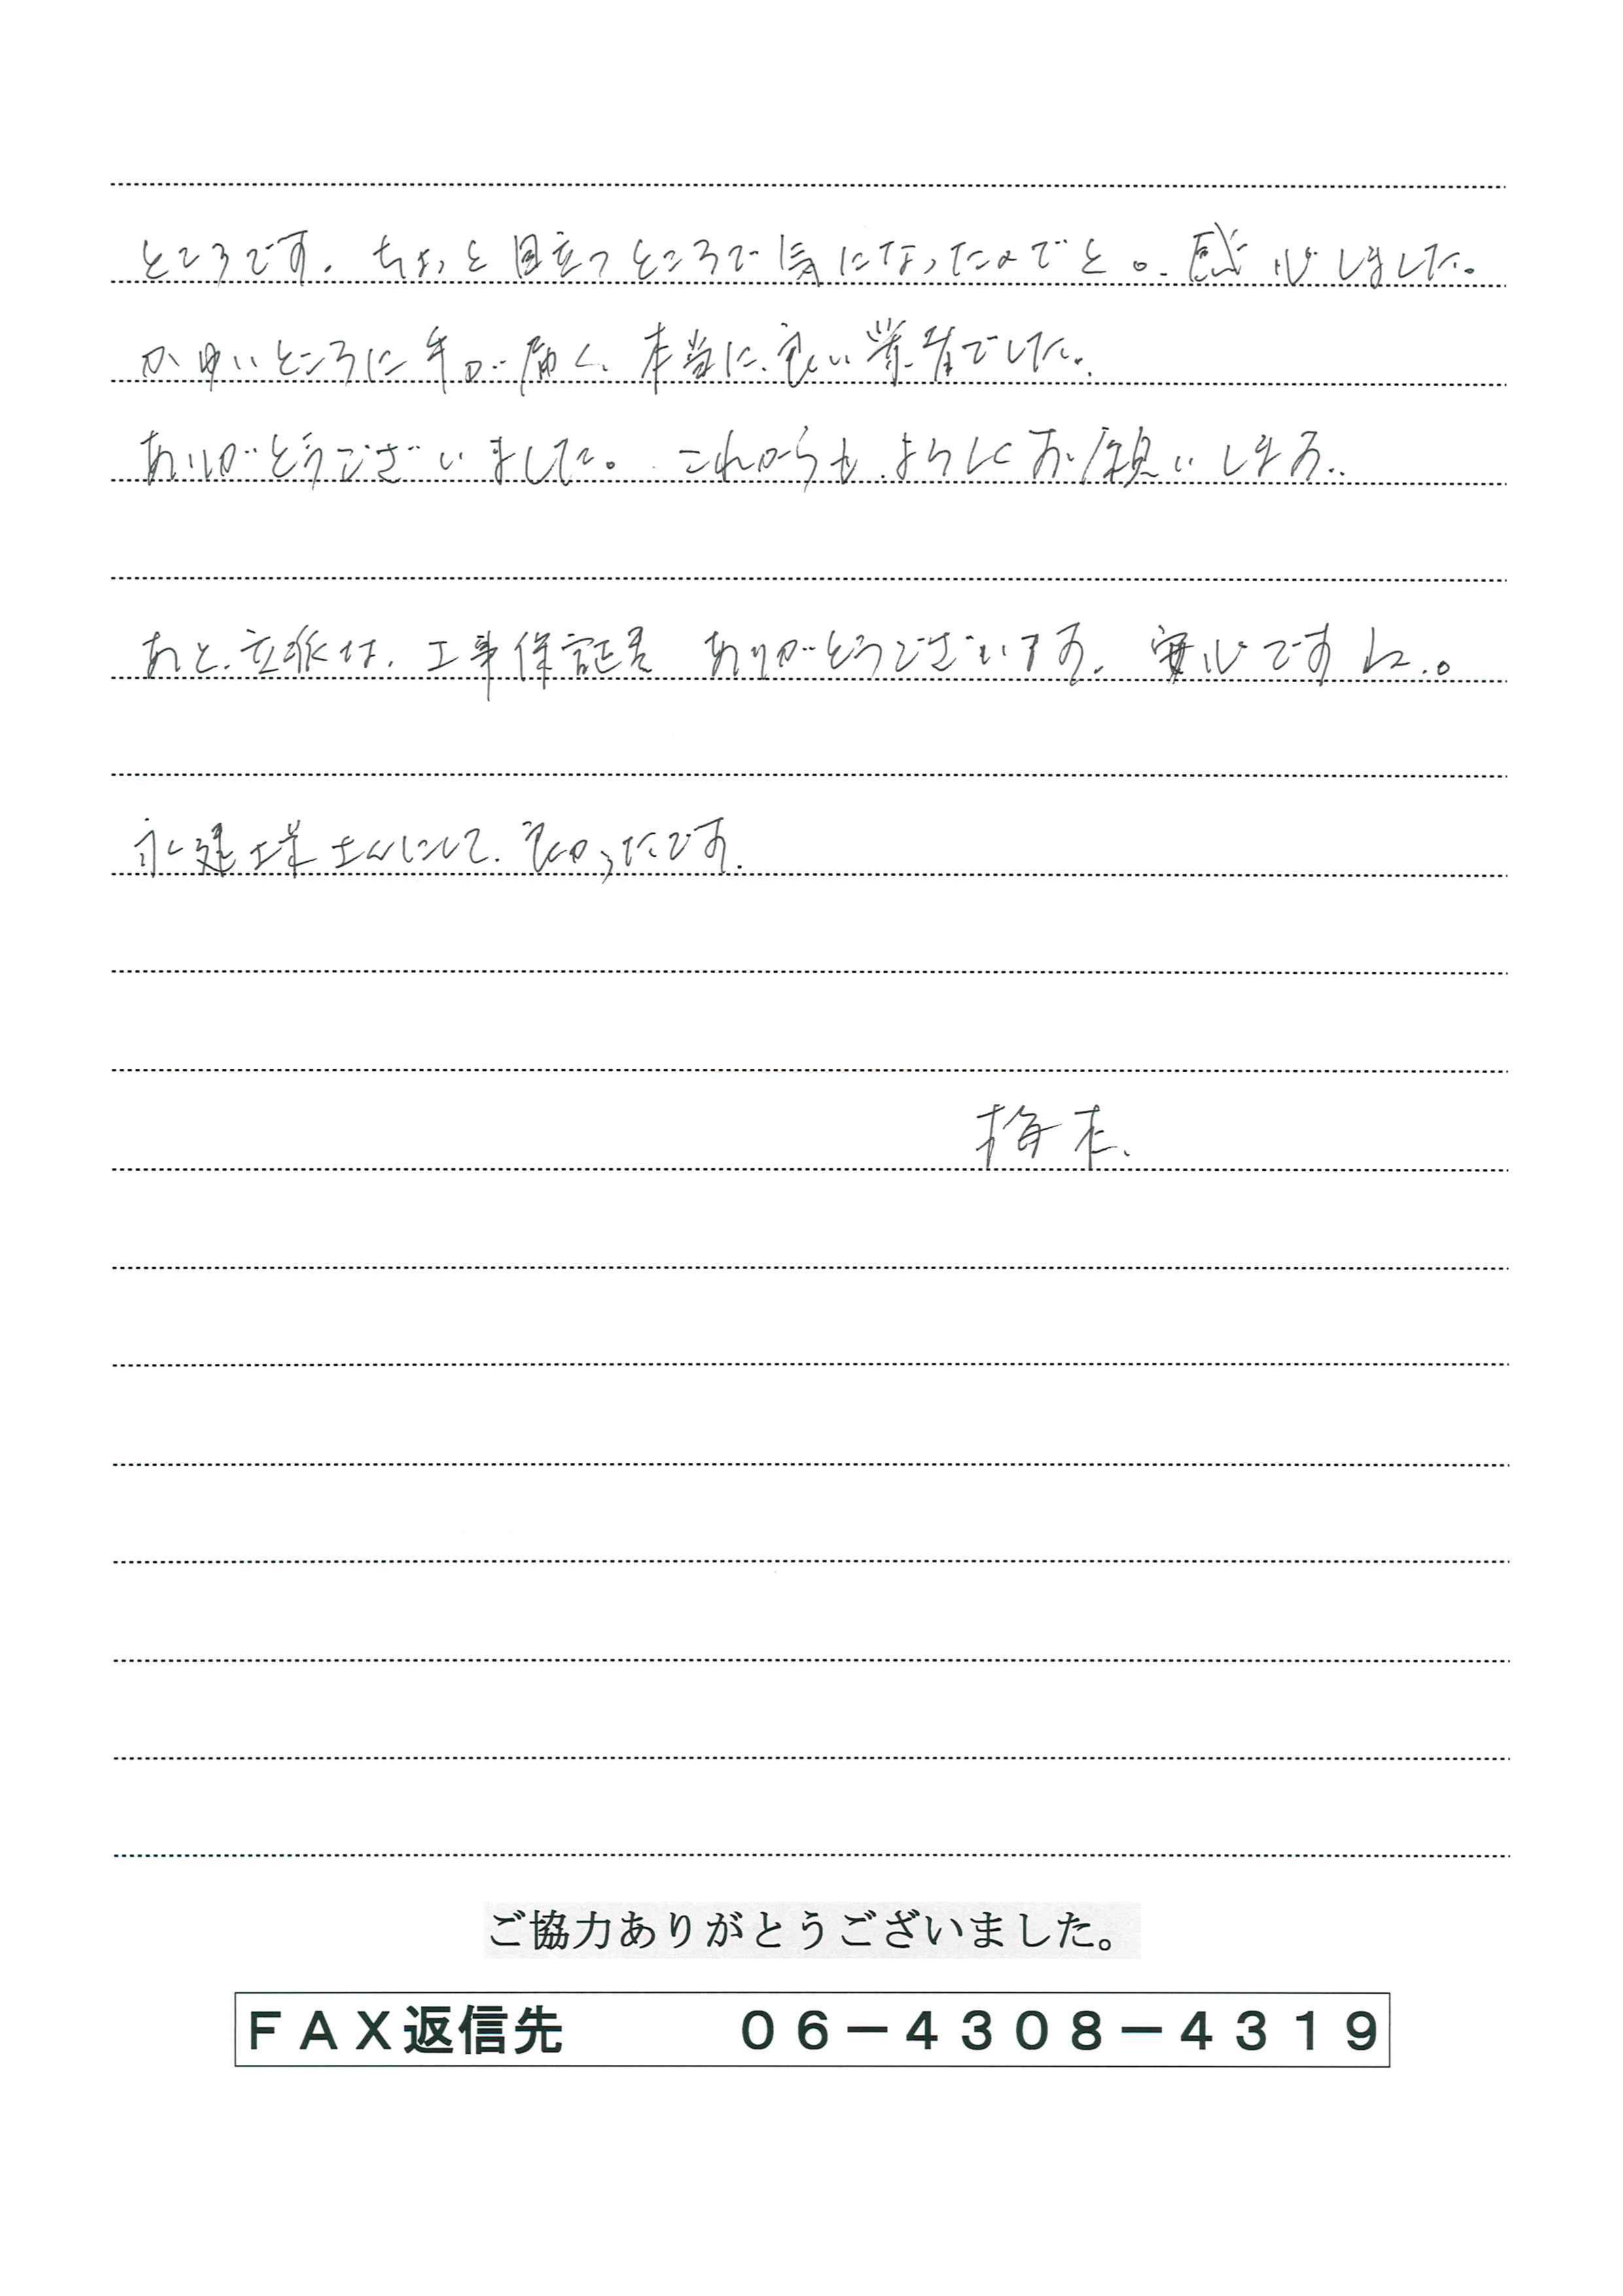 ところです。ちょっと目立つところで気になったのでと。感心しました。
かゆいところに手が届く、本当に良い業者でした。
ありがとうございました。これからもよろしくお願いします。
あと、立派な、工事保証書 ありがとうございます。安心ですね。
永建工業さんにして、良かったです。
梅本.
ご協力ありがとうございました。
ＦＡＸ返信先　０６－４３０８－４３１９